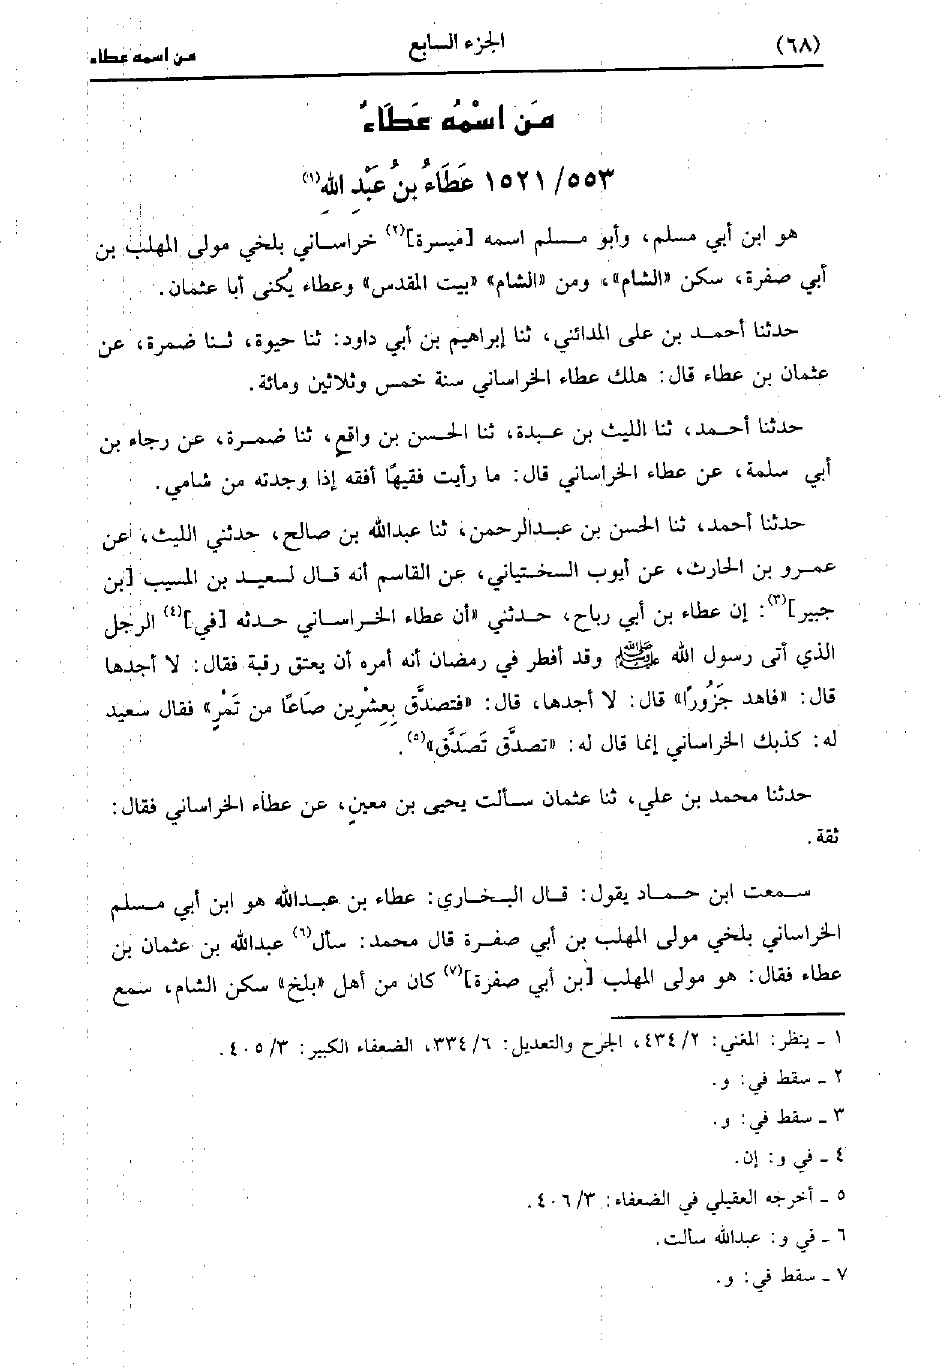 (٦٨) الجزء السابع من اسمه عطاء
مَن اسْمُه عَطَاءُ
١٥٢١/٥٥٣ عَطَاءُ بنُ عَبْدِ اللهِ(١)
هو ابن أبي مسلم، وأبو مسلم اسمه [ميسرة](٢) خراساني بلخي مولى المهلب بن
أبي صفرة، سكن «الشام»، ومن «الشام» «بيت المقدس» وعطاء يُكنى أبا عثمان.
حدثنا أحمد بن على المدائني، ثنا إبراهيم بن أبي داود: ثنا حيوة، ثنا ضمرة، عن
عثمان بن عطاء قال: هلك عطاء الخراساني سنة خمس وثلاثين ومائة.
حدثنا أحمد، ثنا الليث بن عبدة، ثنا الحسن بن واقع، ثنا ضمرة، عن رجاء بن
أبي سلمة، عن عطاء الخراساني قال: ما رأيت فقيهًا أفقه إذا وجدته من شامي.
حدثنا أحمد، ثنا الحسن بن عبدالرحمن، ثنا عبدالله بن صالح، حدثني الليث، عن
عمرو بن الحارث، عن أيوب السختياني، عن القاسم أنه قال لسعيد بن المسيب [بن
جبير](٣): إن عطاء بن أبي رباح، حدثني «أن عطاء الخراساني حدثه [في](٤) الرجل
الذي أتى رسول الله ﷺ وقد أفطر في رمضان أنه أمره أن يعتق رقبة فقال: لا أجدها
قال: «فاهد جَزُورًا» قال: لا أجدها، قال: «فتصدَّق بِعِشْرِين صَاعًا من تَمْرٍ» فقال سعيد
له: كذبك الخراساني إنما قال له: «تصدَّق تَصَدَّق»(٥).
حدثنا محمد بن علي، ثنا عثمان سألت يحيى بن معين، عن عطاء الخراساني فقال:
ثقة.
سمعت ابن حماد يقول: قال البخاري: عطاء بن عبدالله هو ابن أبي مسلم
الخراساني بلخي مولى المهلب بن أبي صفرة قال محمد: سأل(٦) عبدالله بن عثمان بن
عطاء فقال: هو مولى المهلب [بن أبي صفرة](٧) كان من أهل «بلخ» سكن الشام، سمع
١ ـ ينظر: المغني: ٤٣٤/٢، الجرح والتعديل: ٣٣٤/٦، الضعفاء الكبير: ٤٠٥/٣.
٢ ـ سقط في: و.
٣ ـ سقط في: و.
٤ ـ في و: إن.
٥ ـ أخرجه العقيلي في الضعفاء: ٤٠٦/٣.
٦ ـ في و: عبدالله سألت.
٧ ـ سقط في: و.